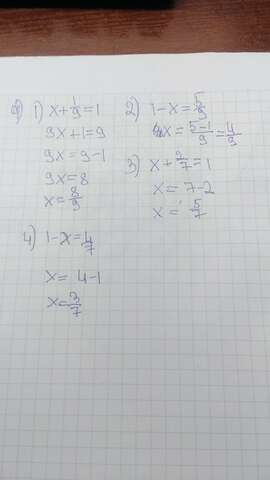 1) x+1/9=1
9x+1=9
9x=9-1
9x=8
x=8/9
2) 1-x=5/9
x=5-1/9=4/9
3) x+2/7=1
x=7-2
x=5/7
4) 1-x=4/7
x=4-1
x=3/7